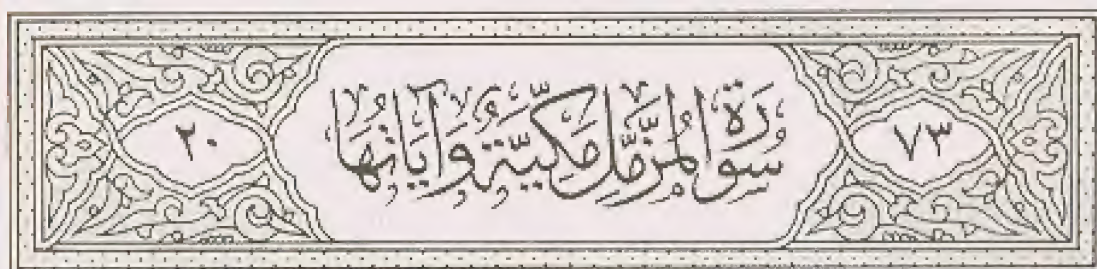 ٧٣ سُورَةُ المُزَّمِّل مَكِّيَّة وَآيَاتُهَا ٢٠